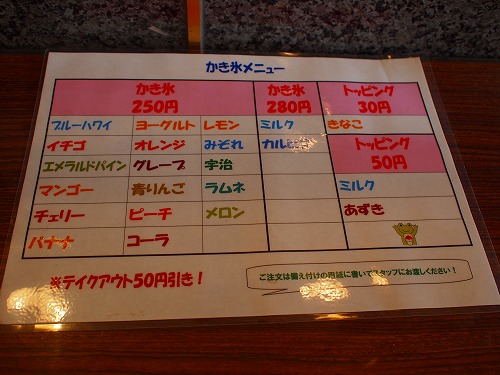 かき氷メニュー
かき氷 250円 かき氷 280円 トッピング 30円
ブルーハワイ ヨーグルト レモン ミルク きなこ
イチゴ オレンジ みぞれ トッピング 50円
エメラルドパイン グレープ 宇治
マンゴー 青りんご ラムネ ミルク
チェリー ピーチ メロン あずき
バナナ コーラ
※テイクアウト50円引き！
ご注文は備え付けの用紙に書いてスタッフにお渡しください！